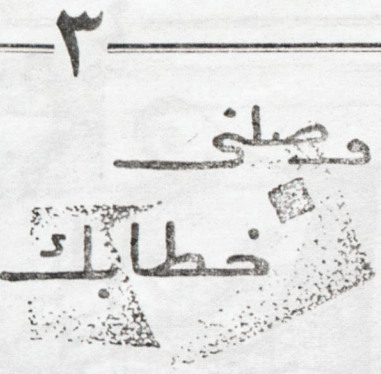 ٣
وصلني
خطابك